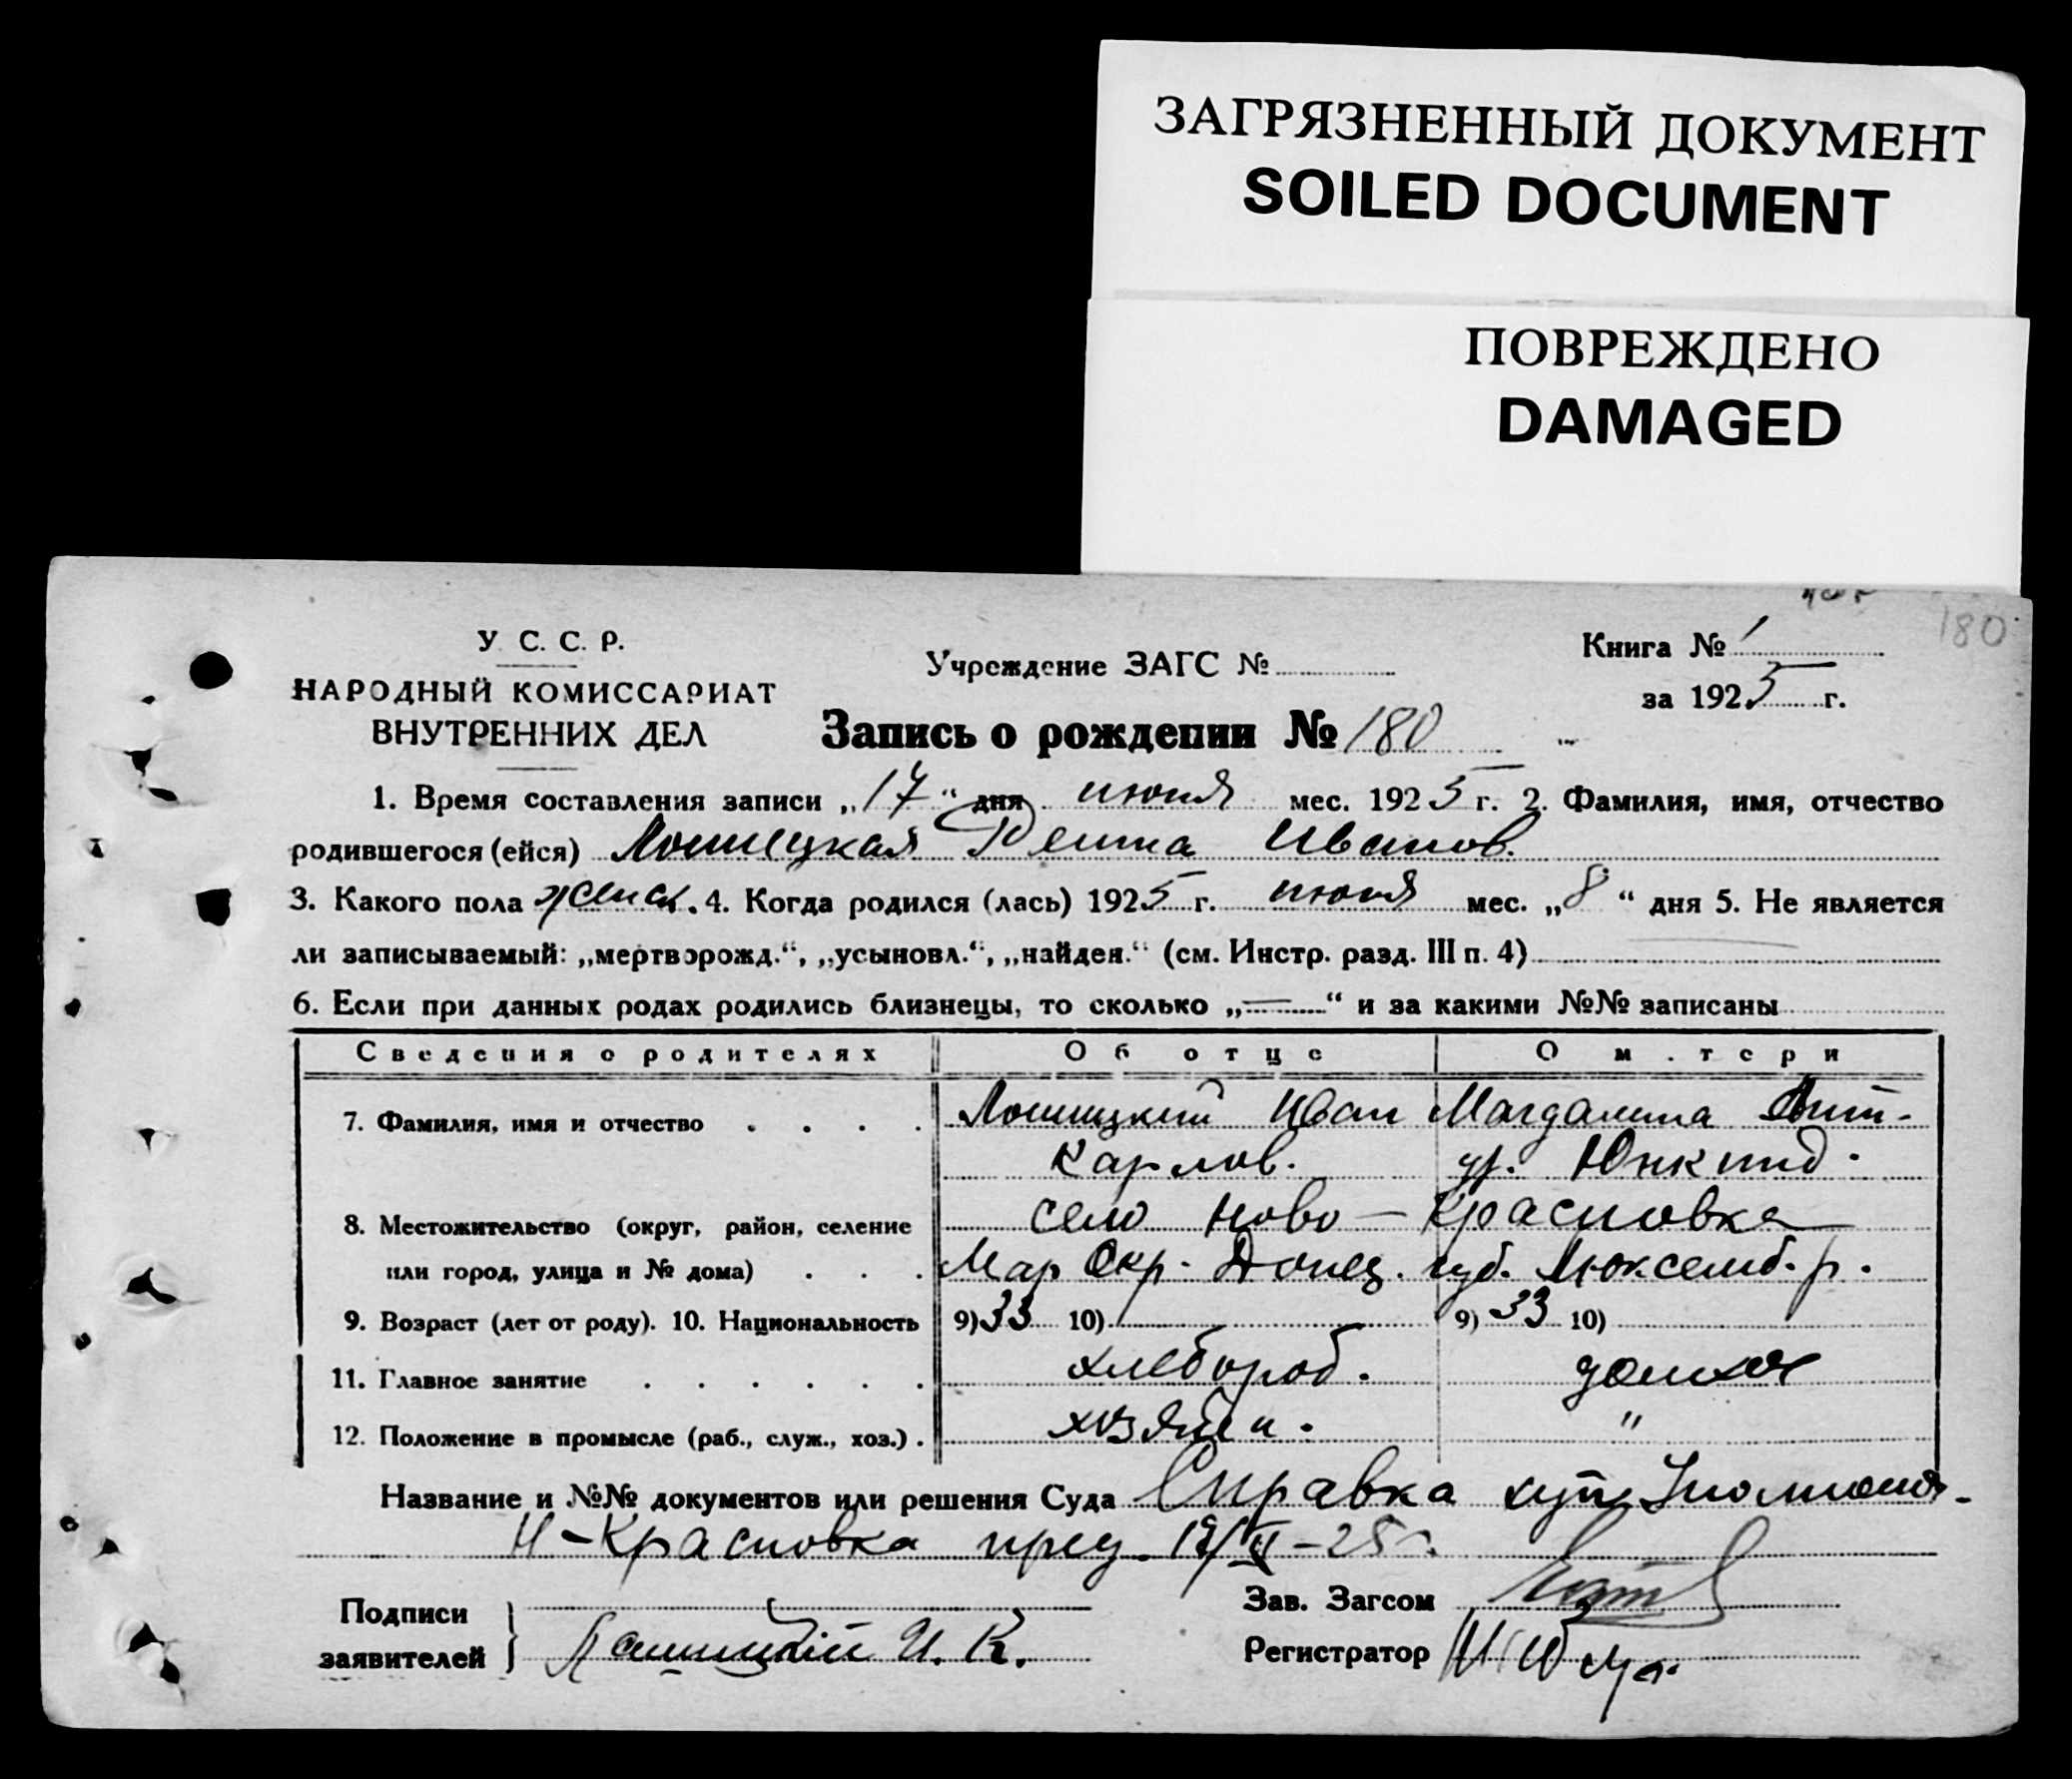 ЗАГРЯЗНЕННЫЙ ДОКУМЕНТ
SOILED DOCUMENT
ПОВРЕЖДЕНО
DAMAGED
180
У. С. С. Р.
НАРОДНЫЙ КОМИССАРИАТ
ВНУТРЕННИХ ДЕЛ
Учреждение ЗАГС №
Книга № 1
за 1925 г.
Запись о рождении № 180
1. Время составления записи „17“ дня июня мес. 1925 г. 2. Фамилия, имя, отчество
родившегося (ейся) Лошицкая Иванов.
3. Какого пола женск. 4. Когда родился (лась) 1925 г. июня мес. „8“ дня 5. Не является
ли записываемый: „мертворожд.“, „усыновл.“, „найден.“ (см. Инстр. разд. III п. 4)
6. Если при данных родах родились близнецы, то сколько „—“ и за какими №№ записаны
Сведения о родителях Об отце О м.тери
7. Фамилия, имя и отчество . . . . Лошицкий Иван Магдалина Ант-
Карлов. ур. Юнкинд.
8. Местожительство (округ, район, селение село Ново-Красновка
или город, улица и № дома) . . . Мар Окр. Донец. губ. Люксемб. р.
9. Возраст (лет от роду). 10. Национальность 9) 33 10) 9) 33 10)
11. Главное занятие . . . . . . хлебороб. домхоз
12. Положение в промысле (раб., служ., хоз.) . хозяин. "
Название и №№ документов или решения Суда Справка
Н-Красновка пред. VI-25 г.
Подписи
заявителей
Лошицкий И. К.
Зав. Загсом
Регистратор